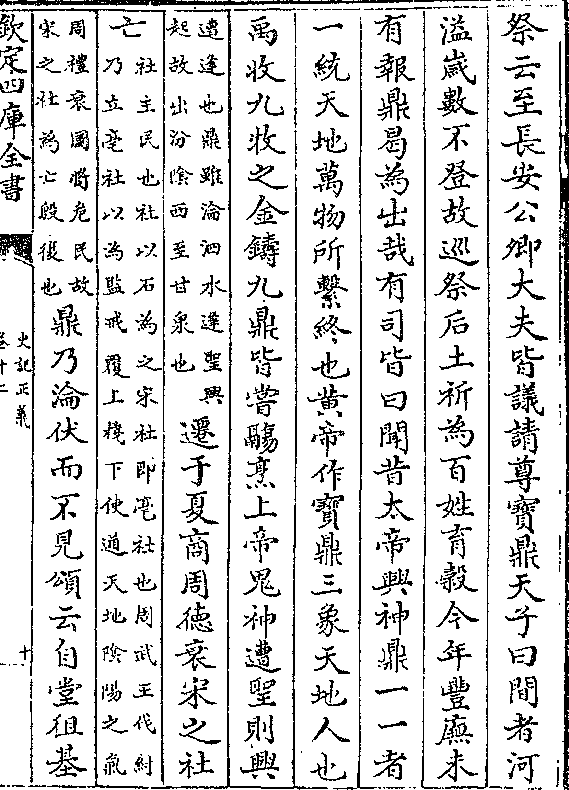 祭云至長安公卿大夫皆議請尊寶鼎天子曰間者河
溢嵗數不登故巡祭后土祈為百姓育穀今年豐廡未
有報鼎曷為出哉有司皆曰聞昔太帝興神鼎一一者
一統天地萬物所繫終也黄帝作寶鼎三象天地人也
禹收九牧之金鑄九鼎皆嘗鬺烹上帝鬼神遭聖則興
遭逢也鼎雖淪泗水逢聖興
起故出汾隂西至甘泉也
遷于夏商周德衰宋之社
社主民也社以石為之宋社即亳社也周武王伐紂
乃立亳社以為監戒覆上棧下使通天地隂陽之氣
亡
周禮衰國將危民故
宋之社為亡殷復也
鼎乃淪伏而不見頌云自堂徂基
欽定四庫全書
史記正義
卷十二
十